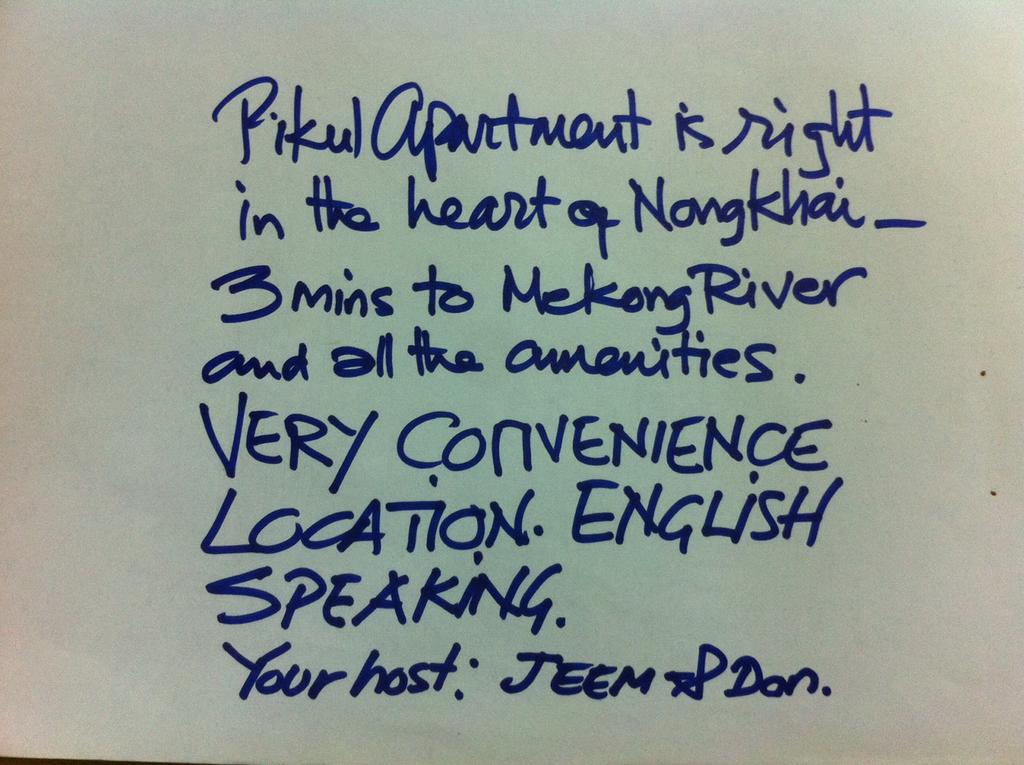 Pikul Apartment is right
in the heart of NongKhai -
3 mins to Mekong River
and all the amenities.
VERY CONVENIENCE
LOCATION. ENGLISH
SPEAKING.
Your host: JEEM & Don.